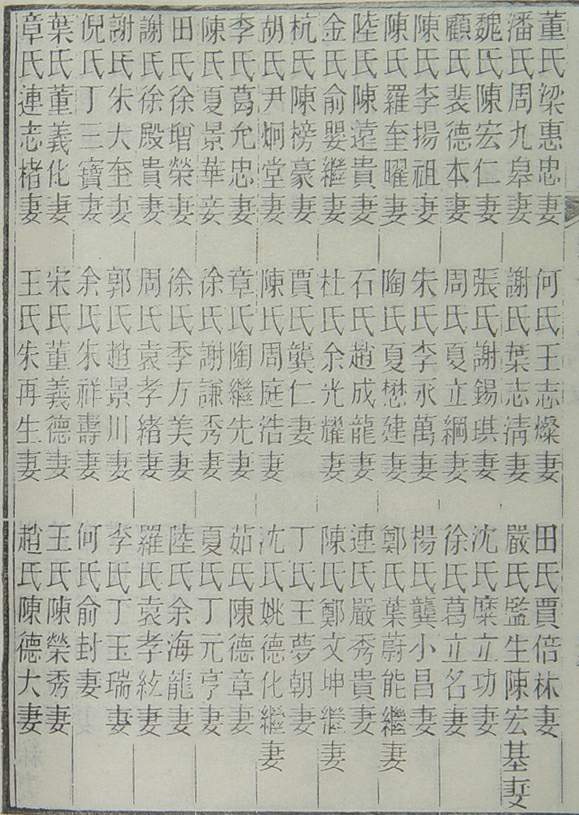 董氏梁惠忠妻 何氏王志燦妻 田氏賈倍林妻
潘氏周九皋妻 謝氏葉志淸妻 嚴氏監生陳宏基妻
魏氏陳宏仁妻 張氏謝錫琪妻 沈氏糜立功妻
顧氏裴德本妻 周氏夏立綱妻 徐氏葛立名妻
陳氏李揚祖妻 朱氏李永萬妻 楊氏龔小昌妻
陳氏羅奎曜妻 陶氏夏懋建妻 鄭氏葉蔚能繼妻
陸氏陳遠貴妻 石氏趙成龍妻 連氏嚴秀貴妻
金氏俞嬰繼妻 杜氏余光耀妻 陳氏鄭文坤繼妻
杭氏陳榜豪妻 賈氏龔仁妻 丁氏王夢朝妻
胡氏尹炯堂妻 陳氏周庭浩妻 沈氏姚德化繼妻
李氏葛允忠妻 章氏陶繼先妻 茹氏陳德章妻
陳氏夏景華妾 徐氏謝謙秀妻 夏氏丁元亨妻
田氏徐榮妻 徐氏季方美妻 陸氏余海龍妻
謝氏徐殿貴妻 周氏袁孝緒妻 羅氏袁孝紘妻
謝氏朱大奎妻 郭氏趙景川妻 李氏丁玉瑞妻
倪氏丁三寶妻 余氏朱祥壽妻 何氏俞封妻
葉氏董義化妻 宋氏董義德妻 王氏陳榮秀妻
章氏連志楮妻 王氏朱再生妻 趙氏陳德大妻